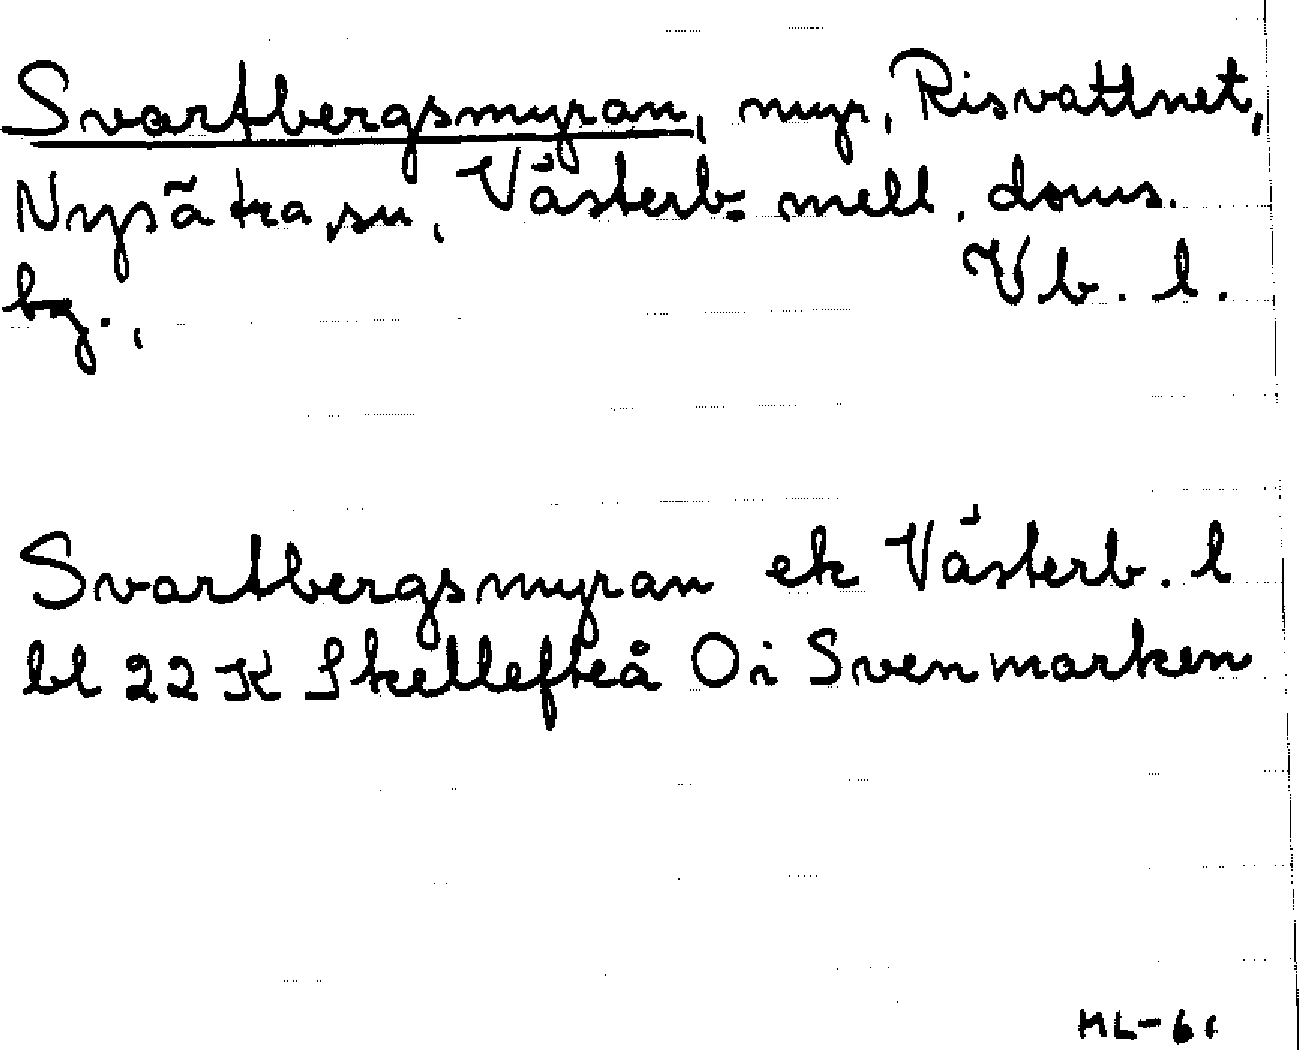 Svartbergsmyran, myr, Risvattnet,
Nysätra sn, Västerb. mell. doms.
bg., Vb. l.
Svartbergsmyran ek Västerb. l
bl 22 K Skellefteå Oi Svenmarken
ML-61